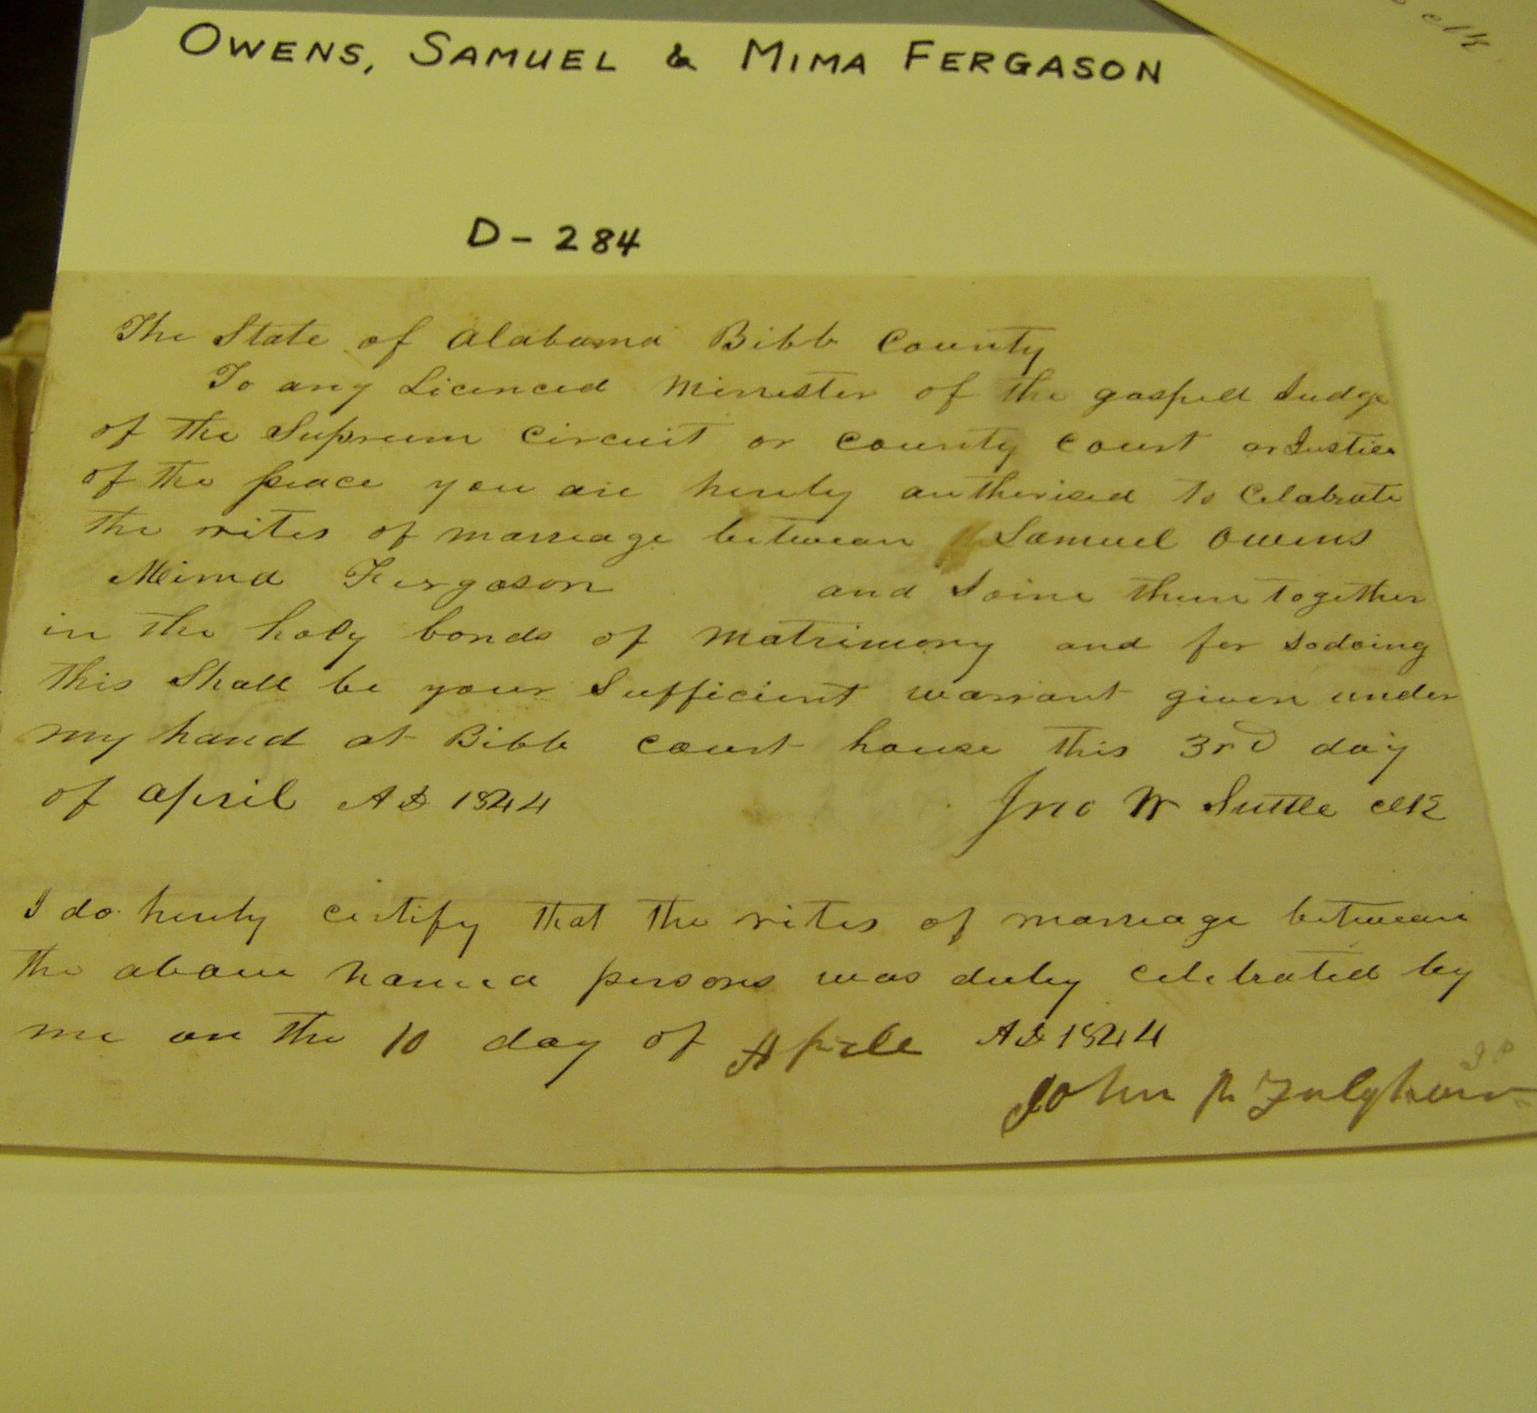 clk
OWENS, SAMUEL & MIMA FERGASON
D-284
The State of Alabama Bibb County
To any Licenced Minister of the gospel Judge
of the Supreem Circuit or County Court or Justice
of the peace you are hereby autherised to Celabrate
the rites of marreage between Samuel Owens
Mima Fergason and Joine them together
in the holy bonds of Matrimony and for sodoing
this Shall be your Sufficient warrant given under
my hand at Bibb Court house this 3rd day
of april AD 1844 Jno W Suttle Clk
I do hereby certify that the rites of marreage between
the above named persons was duly celebrated by
me on the 10 day of Aprile AD 1844
John Fulgham JP